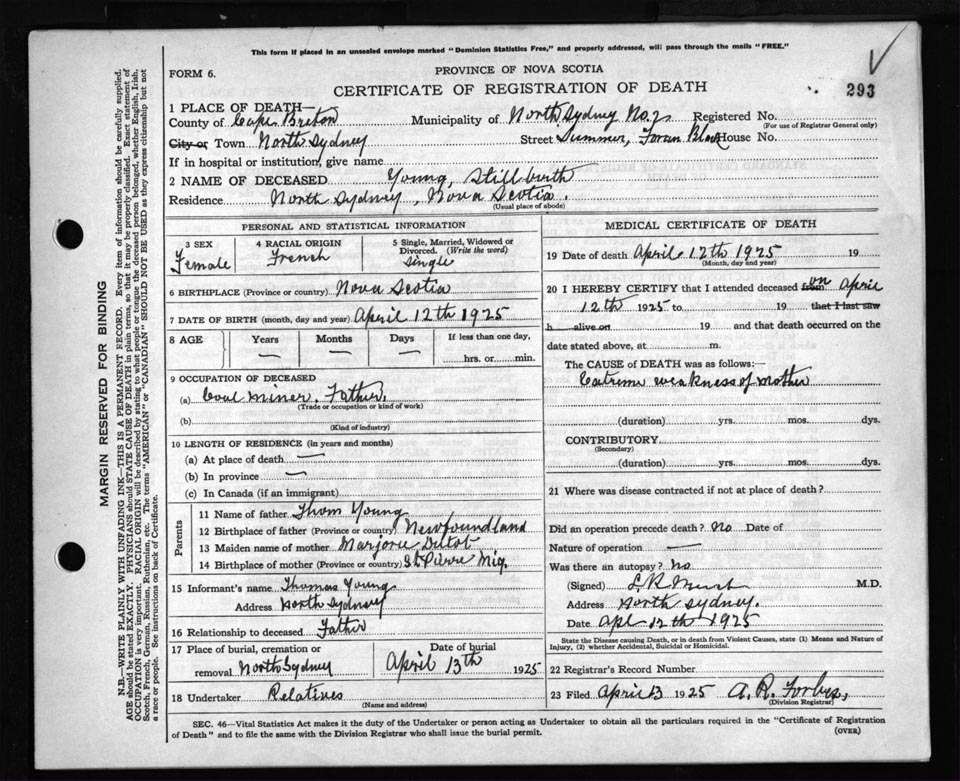 This form if placed in an unsealed envelope marked "Dominion Statistics Free," and properly addressed, will pass through the mails "FREE."
FORM 6.
PROVINCE OF NOVA SCOTIA
CERTIFICATE OF REGISTRATION OF DEATH
293
1 PLACE OF DEATH—
County of Cape Breton Municipality of North Sydney No. 2 Registered No.
(For use of Registrar General only)
City or Town North Sydney Street Summer, Foran Block House No.
If in hospital or institution, give name
2 NAME OF DECEASED Young, Stillbirth
Residence North Sydney, Nova Scotia.
(Usual place of abode)
PERSONAL AND STATISTICAL INFORMATION
3 SEX Female
4 RACIAL ORIGIN French
5 Single, Married, Widowed or Divorced. (Write the word) Single
6 BIRTHPLACE (Province or country) Nova Scotia
7 DATE OF BIRTH (month, day and year) April 12th 1925
8 AGE Years — Months — Days — If less than one day, hrs. or min.
9 OCCUPATION OF DECEASED
(a) Coal miner. Father.
(Trade or occupation or kind of work)
(b)
(Kind of industry)
10 LENGTH OF RESIDENCE (in years and months)
(a) At place of death —
(b) In province —
(c) In Canada (if an immigrant)
Parents
11 Name of father Thom Young
12 Birthplace of father (Province or country) Newfoundland
13 Maiden name of mother Marjorie
14 Birthplace of mother (Province or country) St. Pierre Miq.
15 Informant's name Thomas Young
Address North Sydney
16 Relationship to deceased Father
17 Place of burial, cremation or removal North Sydney
Date of burial April 13th 1925
18 Undertaker Relatives
(Name and address)
MEDICAL CERTIFICATE OF DEATH
19 Date of death April 12th 1925 19
(Month, day and year)
20 I HEREBY CERTIFY that I attended deceased from on April
12th 1925 to 19 that I last saw
h alive on 19 and that death occurred on
date stated above, at m.
The CAUSE of DEATH was as follows:—
Extreme weakness of mother
(duration) yrs. mos. dys.
CONTRIBUTORY
(Secondary)
(duration) yrs. mos. dys.
21 Where was disease contracted if not at place of death?
Did an operation precede death? no Date of
Nature of operation —
Was there an autopsy? no
(Signed) M.D.
Address North Sydney.
Date Apl 12th 1925
State the Disease causing Death, or in death from Violent Causes, state (1) Means and Nature of
Injury, (2) whether Accidental, Suicidal or Homicidal.
22 Registrar's Record Number
23 Filed April 13 1925 A. R. Forbes,
(Division Registrar)
SEC. 46—Vital Statistics Act makes it the duty of the Undertaker or person acting as Undertaker to obtain all the particulars required in the "Certificate of Registration
of Death" and to file the same with the Division Registrar who shall issue the burial permit.
(OVER)
MARGIN RESERVED FOR BINDING
N.B.—WRITE PLAINLY WITH UNFADING INK—THIS IS A PERMANENT RECORD. Every item of information should be carefully supplied.
AGE should be stated EXACTLY. PHYSICIANS should STATE CAUSE OF DEATH in plain terms, so that it may be properly classified. Exact statement of
OCCUPATION is very important. RACIAL ORIGIN will be described by stating to what people or tongue the deceased person belonged, whether English, Irish,
Scotch, French, German, Russian, Ruthenian, etc. The terms "AMERICAN" or "CANADIAN" SHOULD NOT BE USED as they express citizenship but not
a race or people. See instructions on back of Certificate.